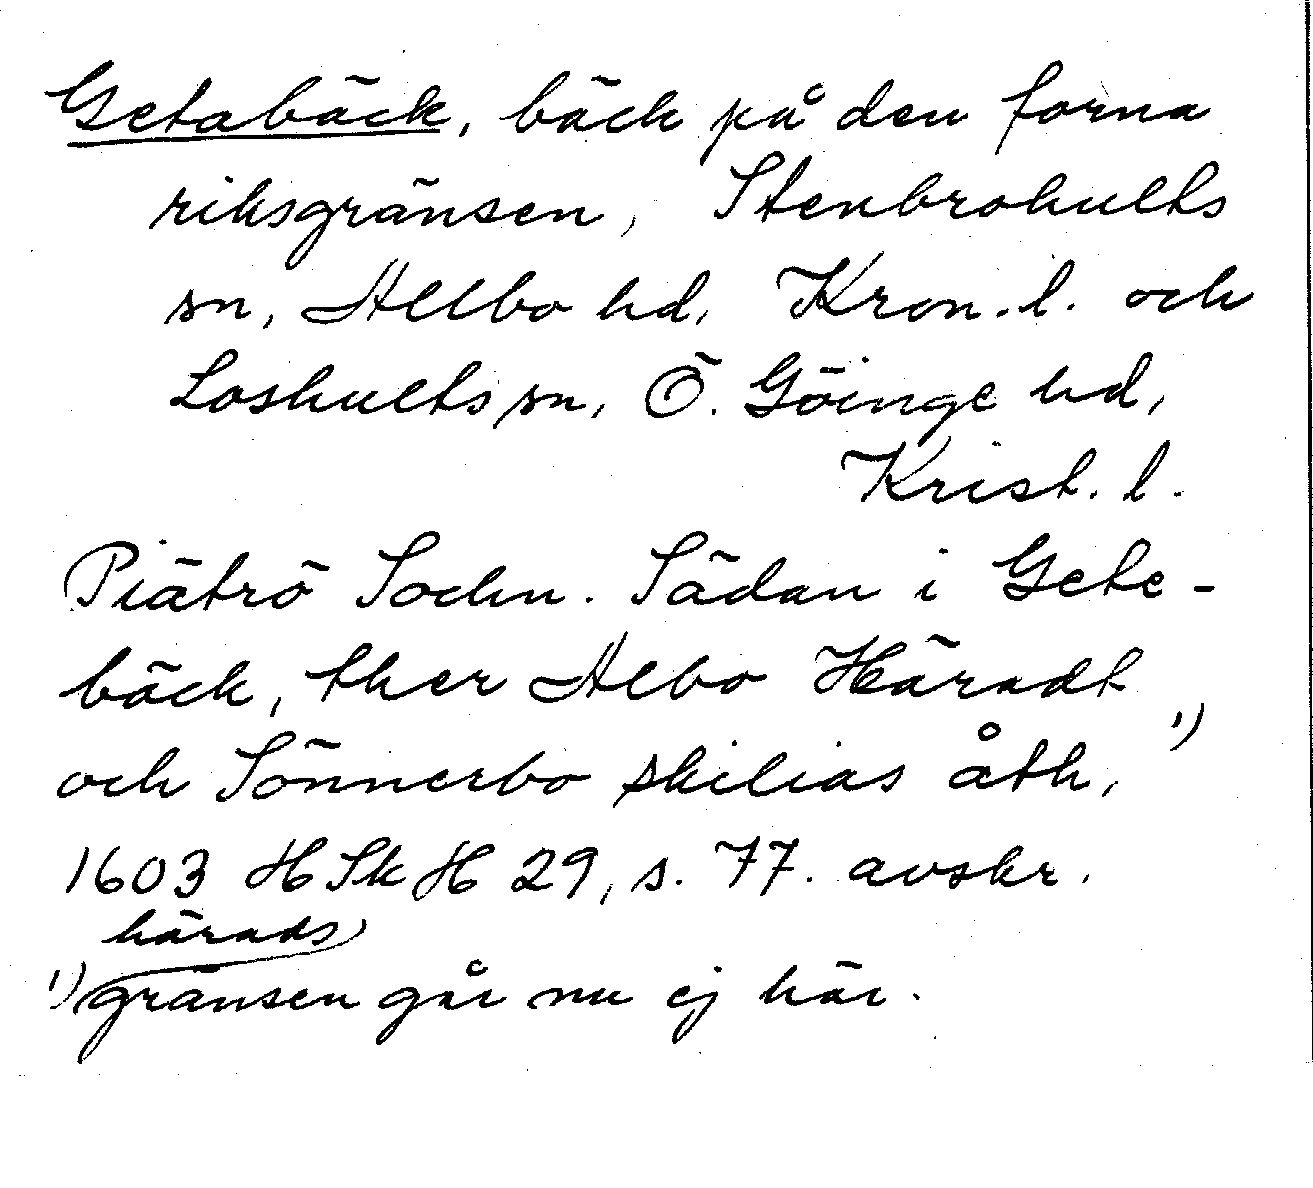 Getabäck, bäck på den forna
riksgränsen, Stenbrohults
sn, Allbo hd, Kron. l. och
Loshults sn, Ö. Göinge hd,
Krist. l.
Piätrö Sochn. Sädan i Gete-
bäck, ther Albo Häradt
och Sönnerbo skilias åth, 1)
1603 HSkH 29, s. 77. avskr.
härads
1) gränsen går nu ej här.